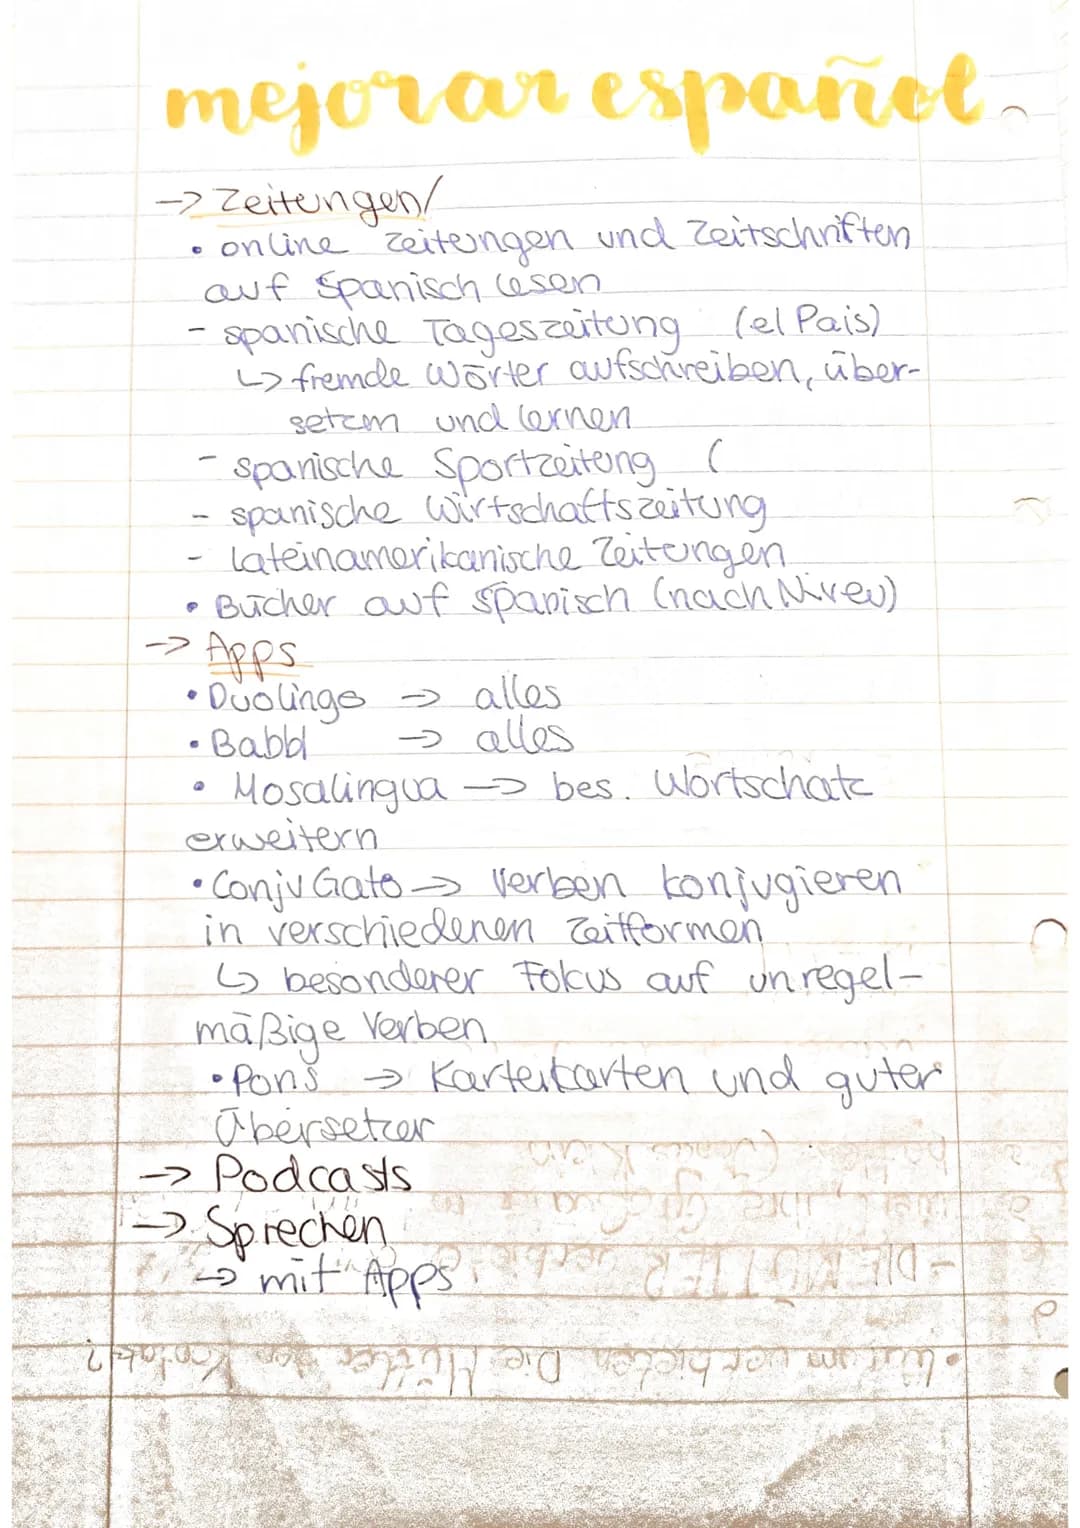 mejorar español
→ Zeitungen/
• online Zeitungen und Zeitschriften
auf Spanisch lesen
- spanische Tageszeitung (el Pais)
↳ fremde Wörter aufschreiben, über-
setzen und lernen
- spanische Sportzeitung (
- spanische Wirtschaftszeitung
- Lateinamerikanische Zeitungen
• Bücher auf Spanisch (nach Niveu)
→ Apps
• Duolingo → alles
• Babbl → alles
• Mosalingua → bes. Wortschatz
erweitern
• ConjuGato → Verben konjugieren
in verschiedenen Zeitformen
↳ besonderer Fokus auf unregel-
mäßige Verben
• Pons → Karteikarten und guter
Übersetzer
→ Podcasts
→ Sprechen
→ mit Apps
- DIE MÜTTER
• Warum verbieten Die Mütter den Kontakt?